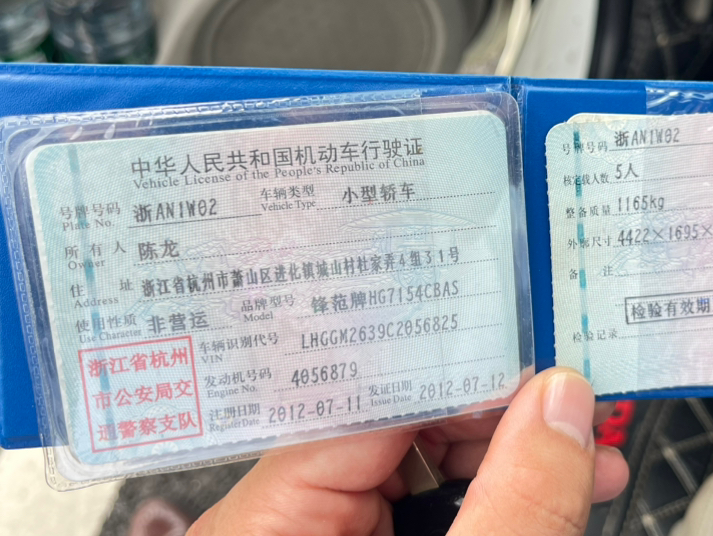 中华人民共和国机动车行驶证
Vehicle License of the People's Republic of China
号牌号码 浙AN1W02 车辆类型 小型轿车
Plate No. Vehicle Type
所有人 陈龙
Owner
住址 浙江省杭州市萧山区进化镇城山村杜家弄4组31号
Address
使用性质 非营运 品牌型号 锋范牌HG7154CBAS
Use Character Model
浙江省杭州
市公安局交
通警察支队
车辆识别代号 LHGGM2639C2056825
VIN
发动机号码 4056879
Engine No.
注册日期 2012-07-11 发证日期 2012-07-12
Register Date Issue Date
号牌号码 浙AN1W02
核定载人数 5人
整备质量 1165kg
外廓尺寸 4422×1695×
备注
检验有效期
检验记录